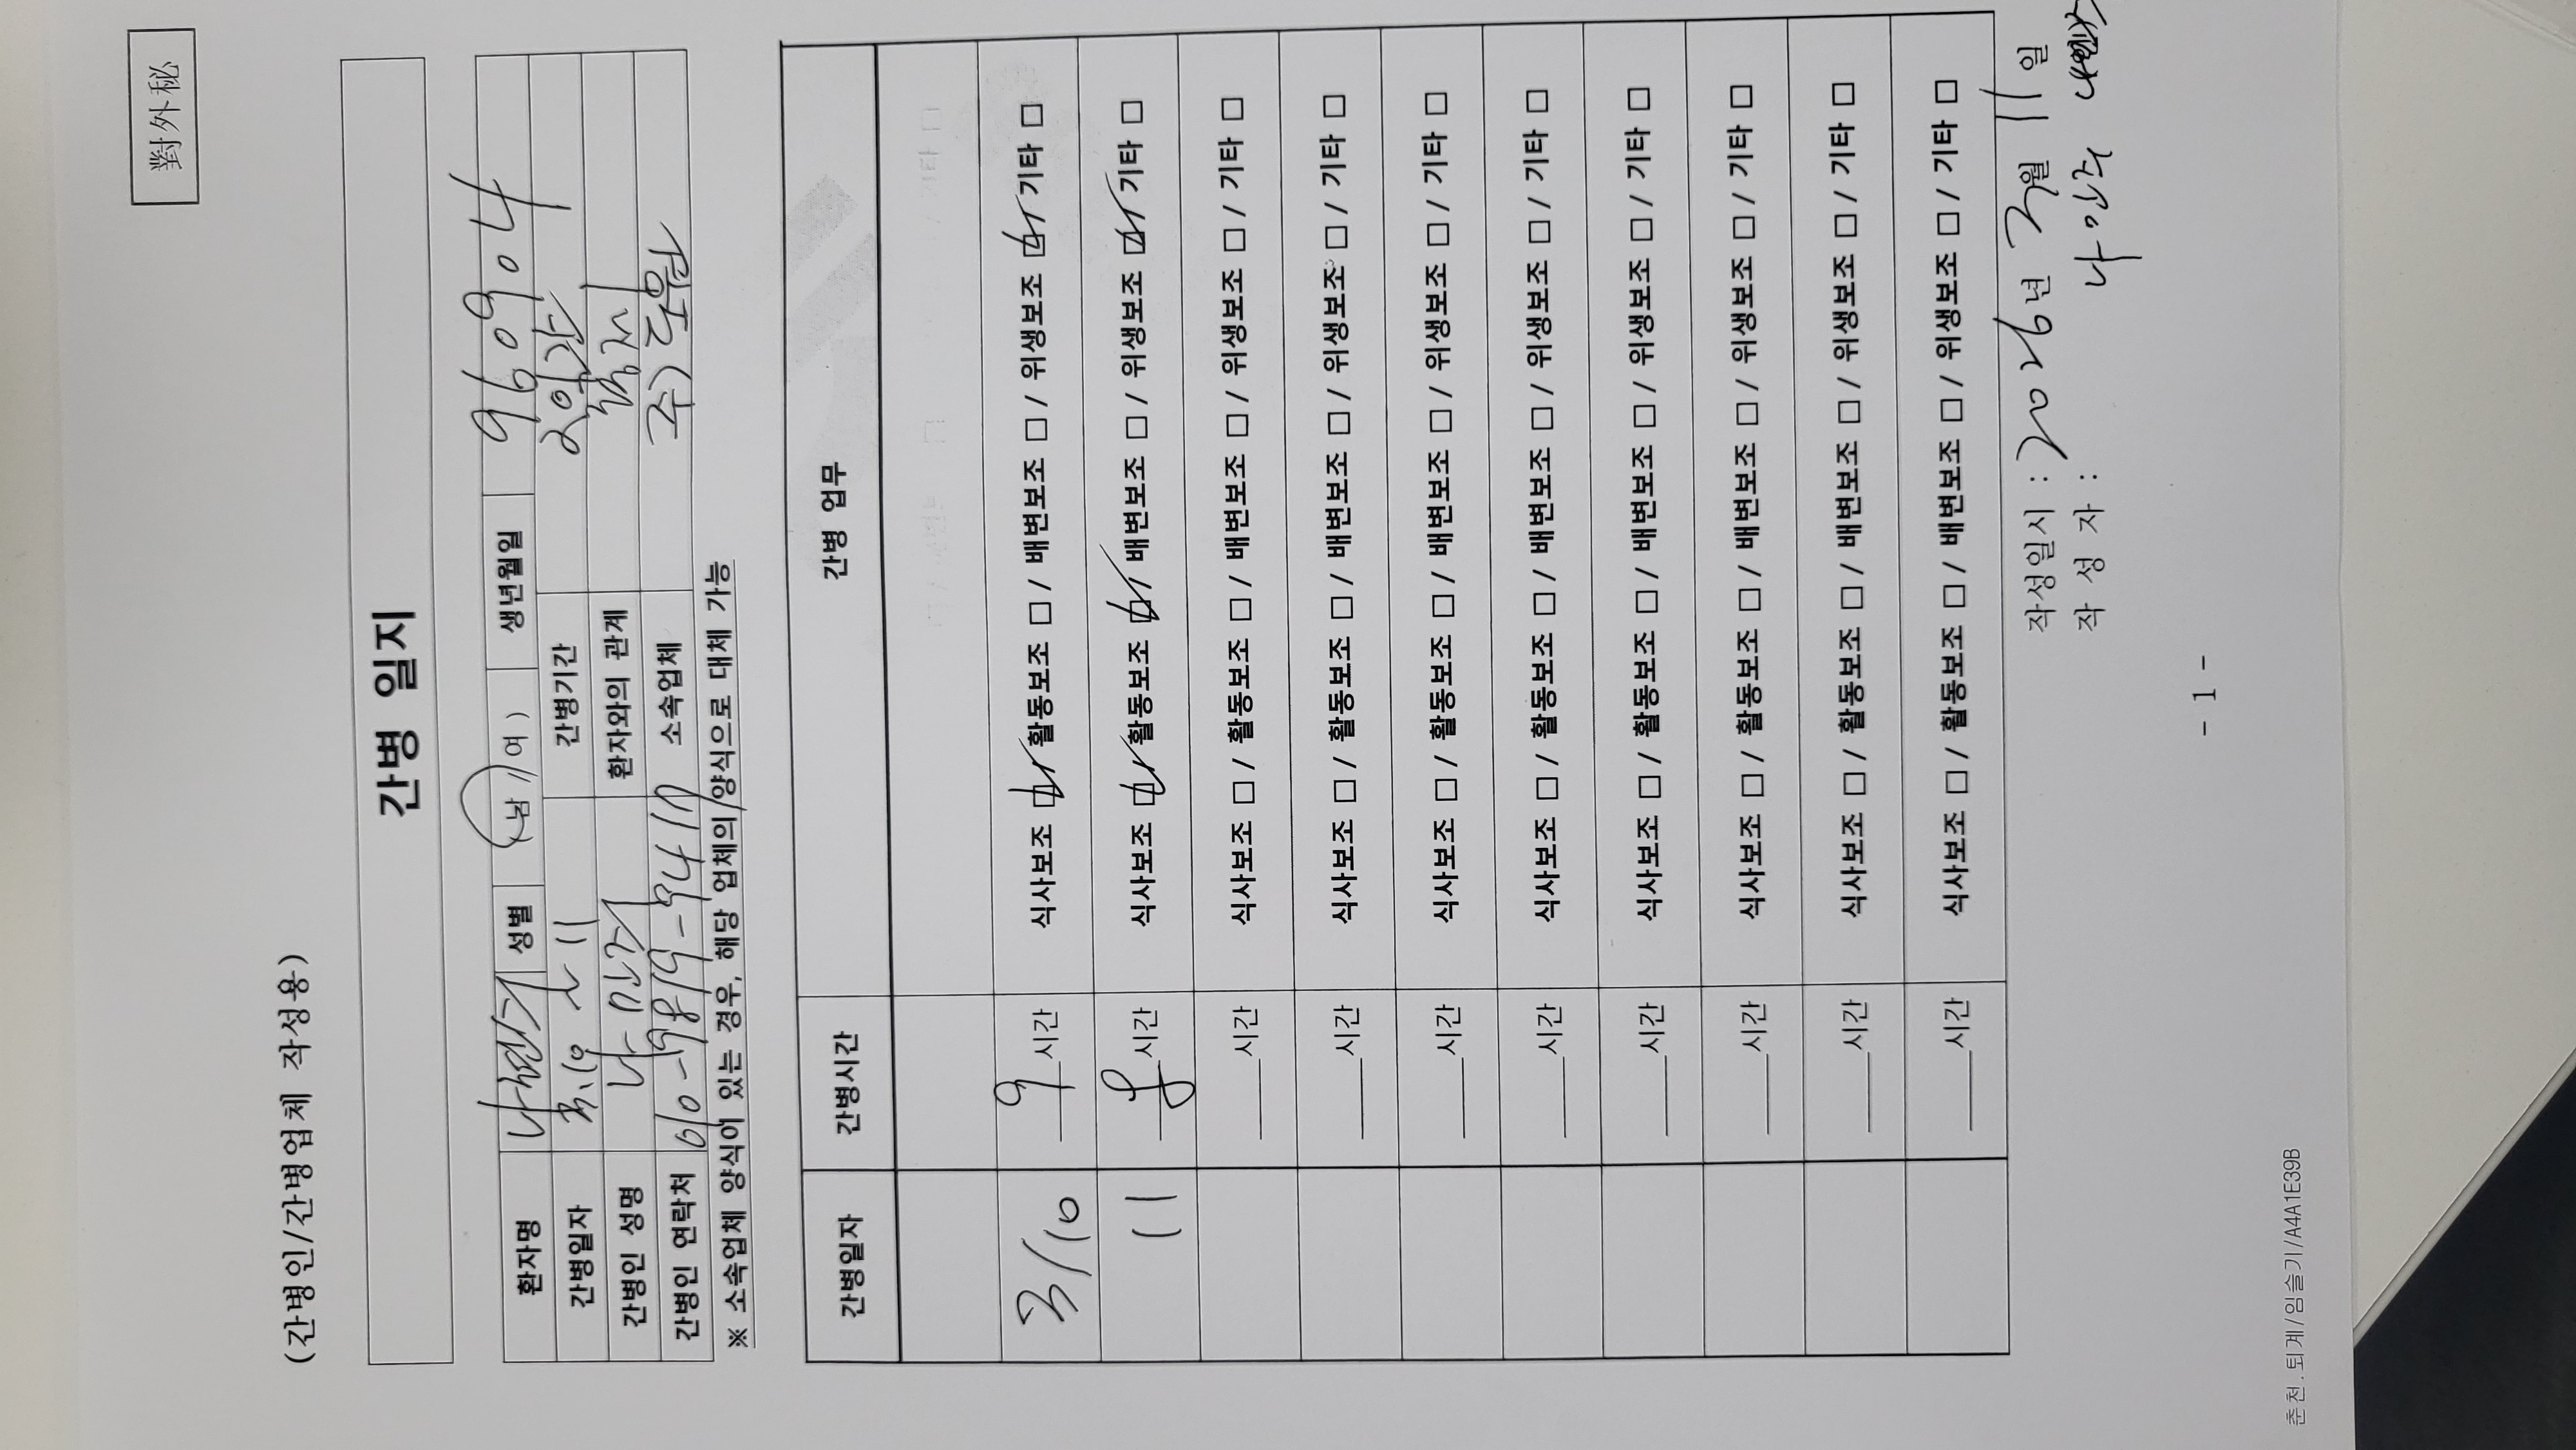 對外秘
(간병인/간병업체 작성용)
간병 일지
환자명 성별 (남 / 여) 생년월일 960904
간병일자 3.10 ~ 11 간병기간 2일간
간병인 성명 환자와의 관계
간병인 연락처 010-9819-9417 소속업체
※ 소속업체 양식이 있는 경우, 해당 업체의 양식으로 대체 가능
간병일자 간병시간 간병 업무
3/10 9 시간 식사보조 ☑ / 활동보조 □ / 배변보조 □ / 위생보조 ☑ / 기타 □
11 8 시간 식사보조 ☑ / 활동보조 ☑ / 배변보조 □ / 위생보조 ☑ / 기타 □
___시간 식사보조 □ / 활동보조 □ / 배변보조 □ / 위생보조 □ / 기타 □
___시간 식사보조 □ / 활동보조 □ / 배변보조 □ / 위생보조 □ / 기타 □
___시간 식사보조 □ / 활동보조 □ / 배변보조 □ / 위생보조 □ / 기타 □
___시간 식사보조 □ / 활동보조 □ / 배변보조 □ / 위생보조 □ / 기타 □
___시간 식사보조 □ / 활동보조 □ / 배변보조 □ / 위생보조 □ / 기타 □
___시간 식사보조 □ / 활동보조 □ / 배변보조 □ / 위생보조 □ / 기타 □
___시간 식사보조 □ / 활동보조 □ / 배변보조 □ / 위생보조 □ / 기타 □
___시간 식사보조 □ / 활동보조 □ / 배변보조 □ / 위생보조 □ / 기타 □
작성일시 : 2026년 3월 11일
작 성 자 :
- 1 -
춘천.퇴계/임슬기/A4A1E39B